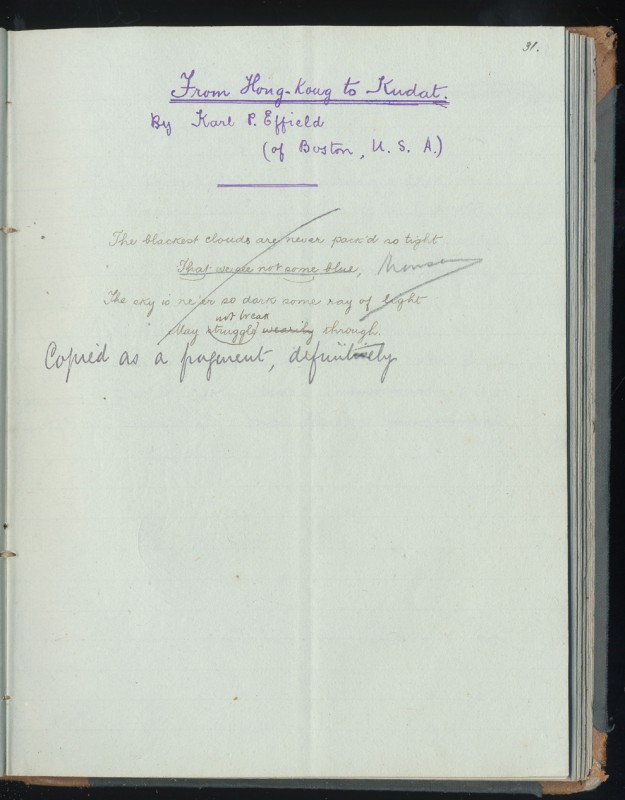 31.
From Hong-Kong to Kudat.
By Karl P. Effield
(of Boston, U. S. A.)
The blackest clouds are never pack'd so tight
That we see not some blue,
The sky is ne'er so dark some ray of light
not break
May struggle wearily through.
Copied as a fragment, definitively